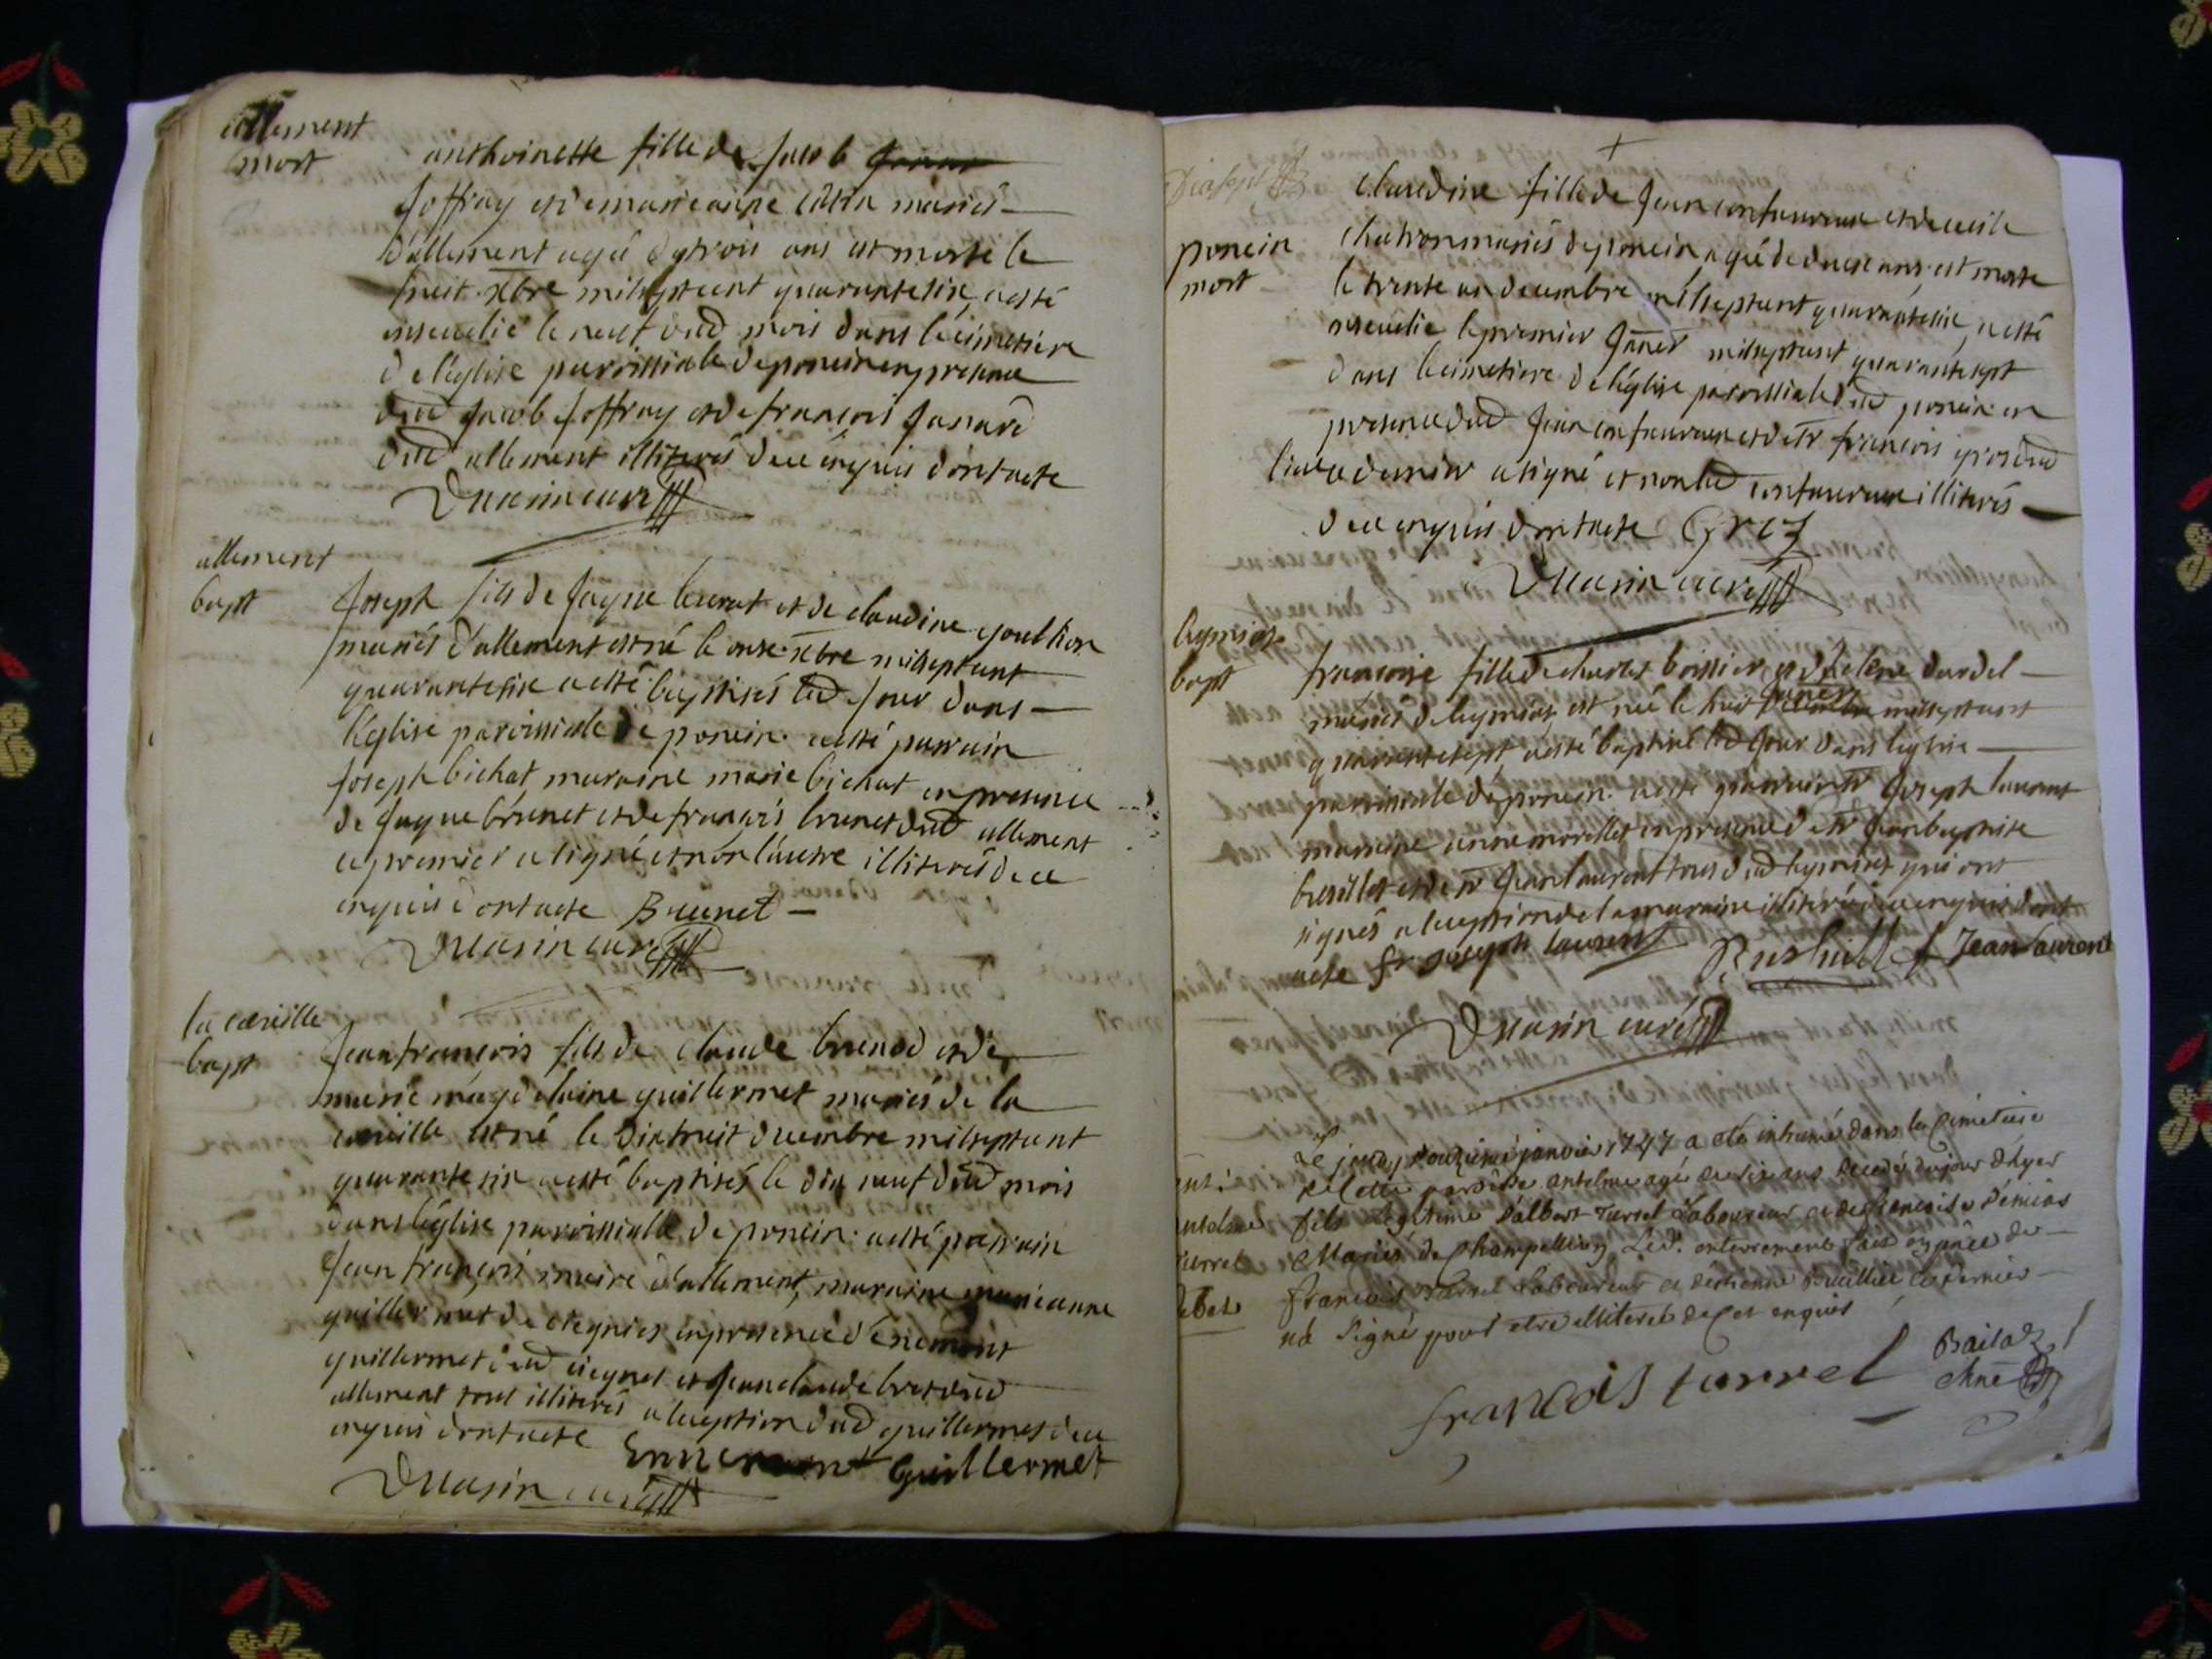 allement
mort
anthoinette fille de Jacob
Joffray et de marie anne mariés
d'allement agé de trois ans est morte le
huit xbre mil sept cent quarante six, a esté
ensevelie le neuf dud mois dans le cimetiere
de l'église parroissiale de poncin en presence
dud Jacob Joffray et de francois
dud allement illiterés de ce enquis dont acte
curé
allement
bapt
Joseph fils de Jaque et de claudine goulhon
mariés d'allement est né le onze xbre mil sept cent
quarante six a esté baptisés led Jour dans
l'église paroissiale de poncin a esté parrain
Joseph bichat maraine marie bichat en presence
de Jaque brunet et de francois brunet dud allement
ce premier a signé et non l'autre illiterés de ce
enquis dont acte Brunet
curé
la cueille
bapt
Jean francois fils de claude brunod et de
marie magdelaine guillermet mariés de la
cueille est né le dix huit decembre mil sept cent
quarante six a esté baptisés le dix neuf dud mois
dans l'église paroissialle de poncin a esté parrain
Jean francois maire d'allement, maraine marie anne
guillermet de en presence d'enemont
guillermet dud et Jean claude bret dud
allement tous illiterés a l'exception dud guillermet de ce
enquis dont acte Ennemont Guillermet
curé
poncin
mort
claudine fille de Jean confavreux et de
chatron mariés de poncin agé de douze ans est morte
le trente un decembre mil sept cent quarante six, a esté
ensevelie le premier Janer mil sept cent quarante sept
dans le cimetiere de l'église paroissiale dud poncin en
presence dud Jean confavreux et de sr francois groz dud
lieu ce dernier a signé et non led confavreux illiterés
de ce enquis dont acte Groz
curé
leymiat
bapt
francoise fille de charles boissier et d'helene dardel
mariés de leymiat est née le huit Janer mil sept cent
quarante sept a esté baptisé led Jour dans l'église
parroissiale de poncin a esté parrain sr Joseph laurent
marraine anne morellet en presence de sr Jean baptiste
et de sr Jean laurent tous dud leymiat qui ont
signés a l'exception de la maraine illiterée de ce enquis dont
acte joseph laurent Jean laurent
curé
Le jeudy douzieme janvier 1747 a eté inhumé dans le Cimetiere
de cette paroisse antelme agé de six ans decedé du jour d'hyer
fils Legitime d'albert Turrel Laboureur et de francoise
Mariés de Champeillon Led. enterrement fait en pnce de
francois Turrel Laboureur et d'etienne ce dernier
na Signé pour etre illiteré de ce enquis
antelme
turrel
francois turrel